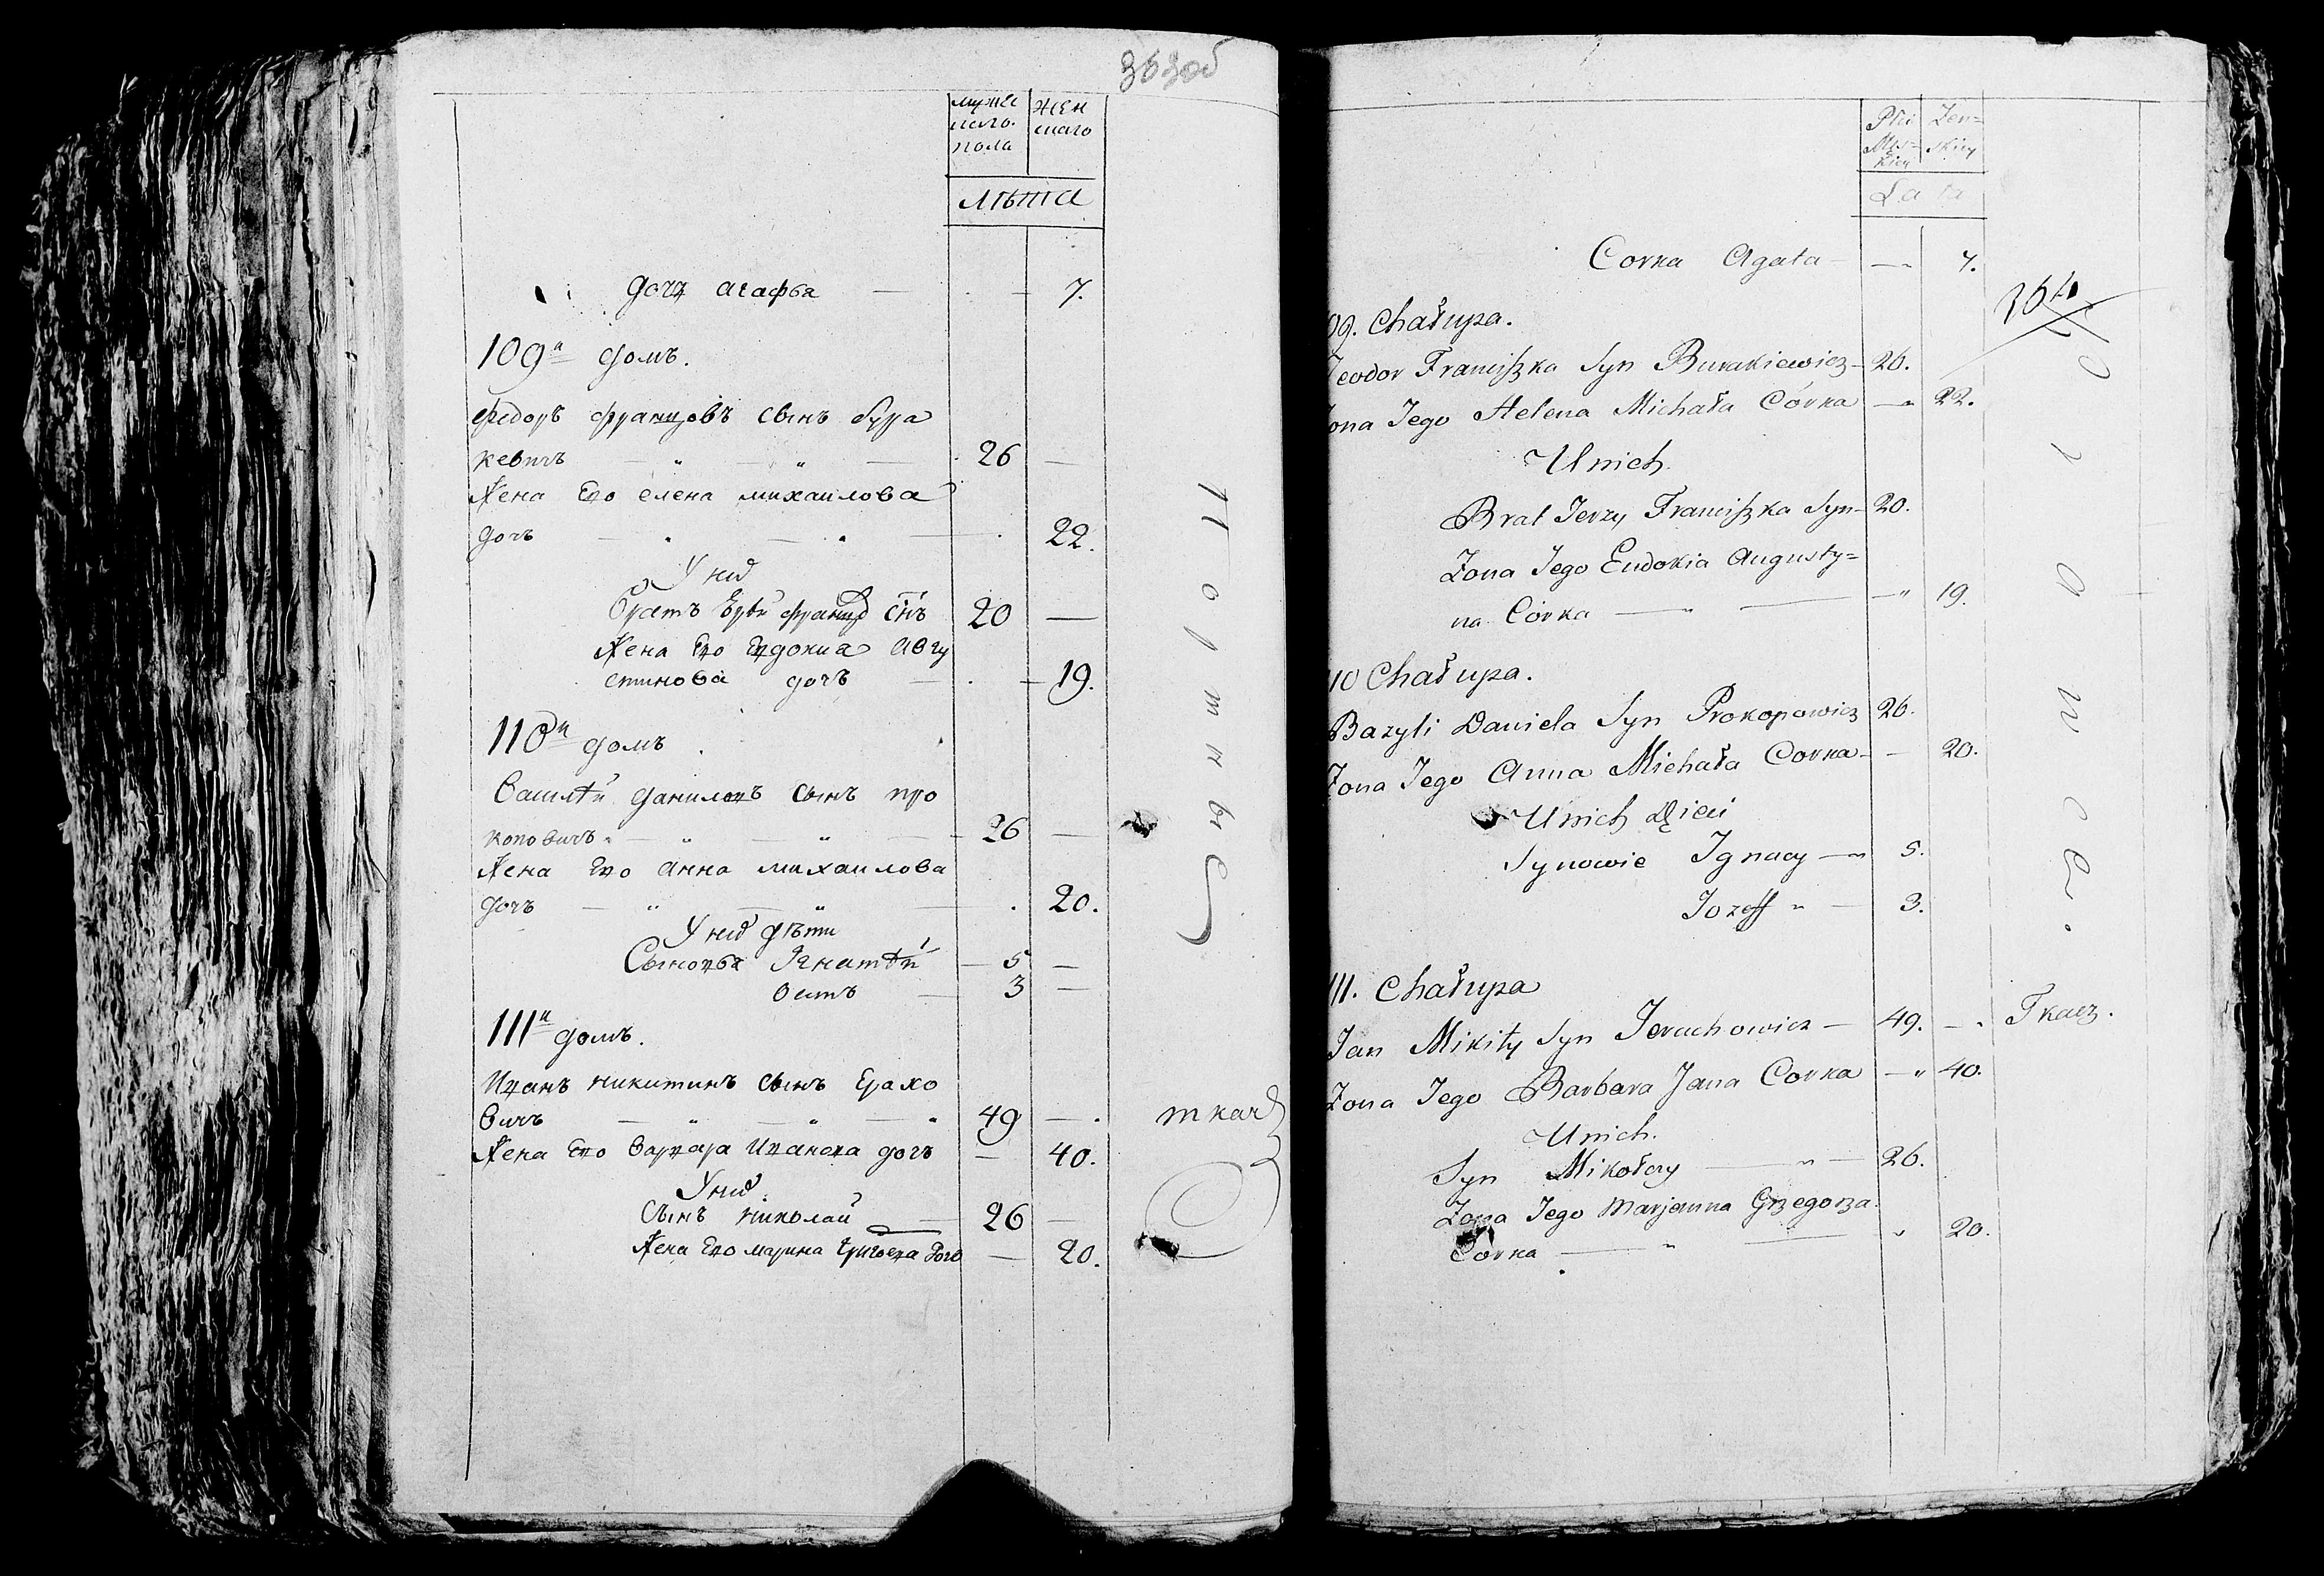 363об
мужескаго пола
женскаго
лѣта
дочь агафья 7.
109й домъ.
Федоръ францовъ сынъ Бура
кевичъ 26
Жена Его елена михаилова
дочь 22.
У них
братъ Юрій францо снъ 20
Жена Его Евдокиа Авгу
стинова дочь 19.
110й домъ
Василѣй даниловъ сынъ про
коповичъ 26
Жена Его Анна михаилова
дочь 20.
У них дѣти
Сыновья Игнатѣй 5
Осипъ 3
111й домъ.
Иванъ никитинъ сынъ Ерахо
вичъ 49
ткачь
Жена Его Варвара Иванова дочь 40.
У них
Сынъ николай 26
Жена Его марина Григорьева дочь 20.
Płci Męskiey
Żeńskiey
Lata
364
Corka Agata 7.
109. Chałupa.
Teodor Franciszka Syn Burakiewicz 26.
Żona Jego Helena Michała Córka 22.
U nich
Brat Jerzy Franciszka Syn 20.
Żona Jego Eudokia Augusty=
na Córka 19.
110 Chałupa.
Bazyli Daniela Syn Prokopowicz 26.
Żona Jego Anna Michała Corka 20.
U nich Dzieci
Synowie Ignacy 5.
Jozeff 3.
111. Chałupa
Jan Mikity Syn Jerachowicz 49. Tkacz.
Żona Jego Barbara Jana Corka 40.
U nich.
Syn Mikołay 26.
Żona Jego Marjanna Grzegorza
Corka 20.